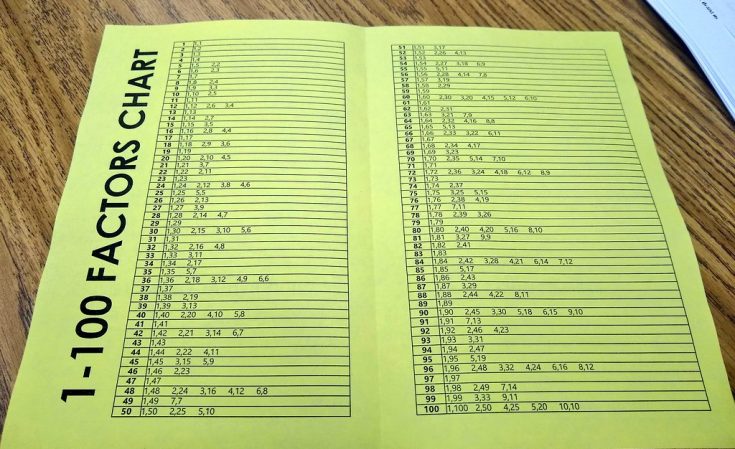 1-100 FACTORS CHART
1 1,1
2 1,2
3 1,3
4 1,4 2,2
5 1,5
6 1,6 2,3
7 1,7
8 1,8 2,4
9 1,9 3,3
10 1,10 2,5
11 1,11
12 1,12 2,6 3,4
13 1,13
14 1,14 2,7
15 1,15 3,5
16 1,16 2,8 4,4
17 1,17
18 1,18 2,9 3,6
19 1,19
20 1,20 2,10 4,5
21 1,21 3,7
22 1,22 2,11
23 1,23
24 1,24 2,12 3,8 4,6
25 1,25 5,5
26 1,26 2,13
27 1,27 3,9
28 1,28 2,14 4,7
29 1,29
30 1,30 2,15 3,10 5,6
31 1,31
32 1,32 2,16 4,8
33 1,33 3,11
34 1,34 2,17
35 1,35 5,7
36 1,36 2,18 3,12 4,9 6,6
37 1,37
38 1,38 2,19
39 1,39 3,13
40 1,40 2,20 4,10 5,8
41 1,41
42 1,42 2,21 3,14 6,7
43 1,43
44 1,44 2,22 4,11
45 1,45 3,15 5,9
46 1,46 2,23
47 1,47
48 1,48 2,24 3,16 4,12 6,8
49 1,49 7,7
50 1,50 2,25 5,10
51 1,51 3,17
52 1,52 2,26 4,13
53 1,53
54 1,54 2,27 3,18 6,9
55 1,55 5,11
56 1,56 2,28 4,14 7,8
57 1,57 3,19
58 1,58 2,29
59 1,59
60 1,60 2,30 3,20 4,15 5,12 6,10
61 1,61
62 1,62 2,31
63 1,63 3,21 7,9
64 1,64 2,32 4,16 8,8
65 1,65 5,13
66 1,66 2,33 3,22 6,11
67 1,67
68 1,68 2,34 4,17
69 1,69 3,23
70 1,70 2,35 5,14 7,10
71 1,71
72 1,72 2,36 3,24 4,18 6,12 8,9
73 1,73
74 1,74 2,37
75 1,75 3,25 5,15
76 1,76 2,38 4,19
77 1,77 7,11
78 1,78 2,39 3,26
79 1,79
80 1,80 2,40 4,20 5,16 8,10
81 1,81 3,27 9,9
82 1,82 2,41
83 1,83
84 1,84 2,42 3,28 4,21 6,14 7,12
85 1,85 5,17
86 1,86 2,43
87 1,87 3,29
88 1,88 2,44 4,22 8,11
89 1,89
90 1,90 2,45 3,30 5,18 6,15 9,10
91 1,91 7,13
92 1,92 2,46 4,23
93 1,93 3,31
94 1,94 2,47
95 1,95 5,19
96 1,96 2,48 3,32 4,24 6,16 8,12
97 1,97
98 1,98 2,49 7,14
99 1,99 3,33 9,11
100 1,100 2,50 4,25 5,20 10,10